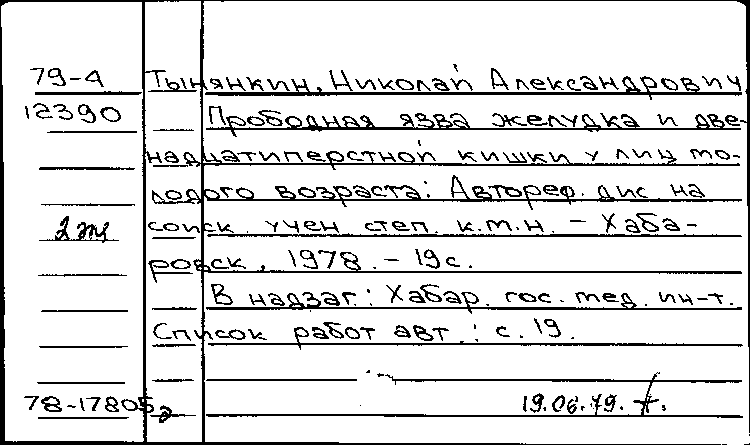 79-4 Тынянкин, Николай Александрович
12390 Прободная язва желудка и две-
надцатиперстной кишки у лиц мо-
лодого возраста: Автореф. дис. на
2 экз соиск. учен. степ. к.м.н. – Хаба-
ровск, 1978. – 19 с.
В надзаг.: Хабар. гос. мед. ин-т.
Список работ авт.: с. 19.
78-17805 19.06.79.